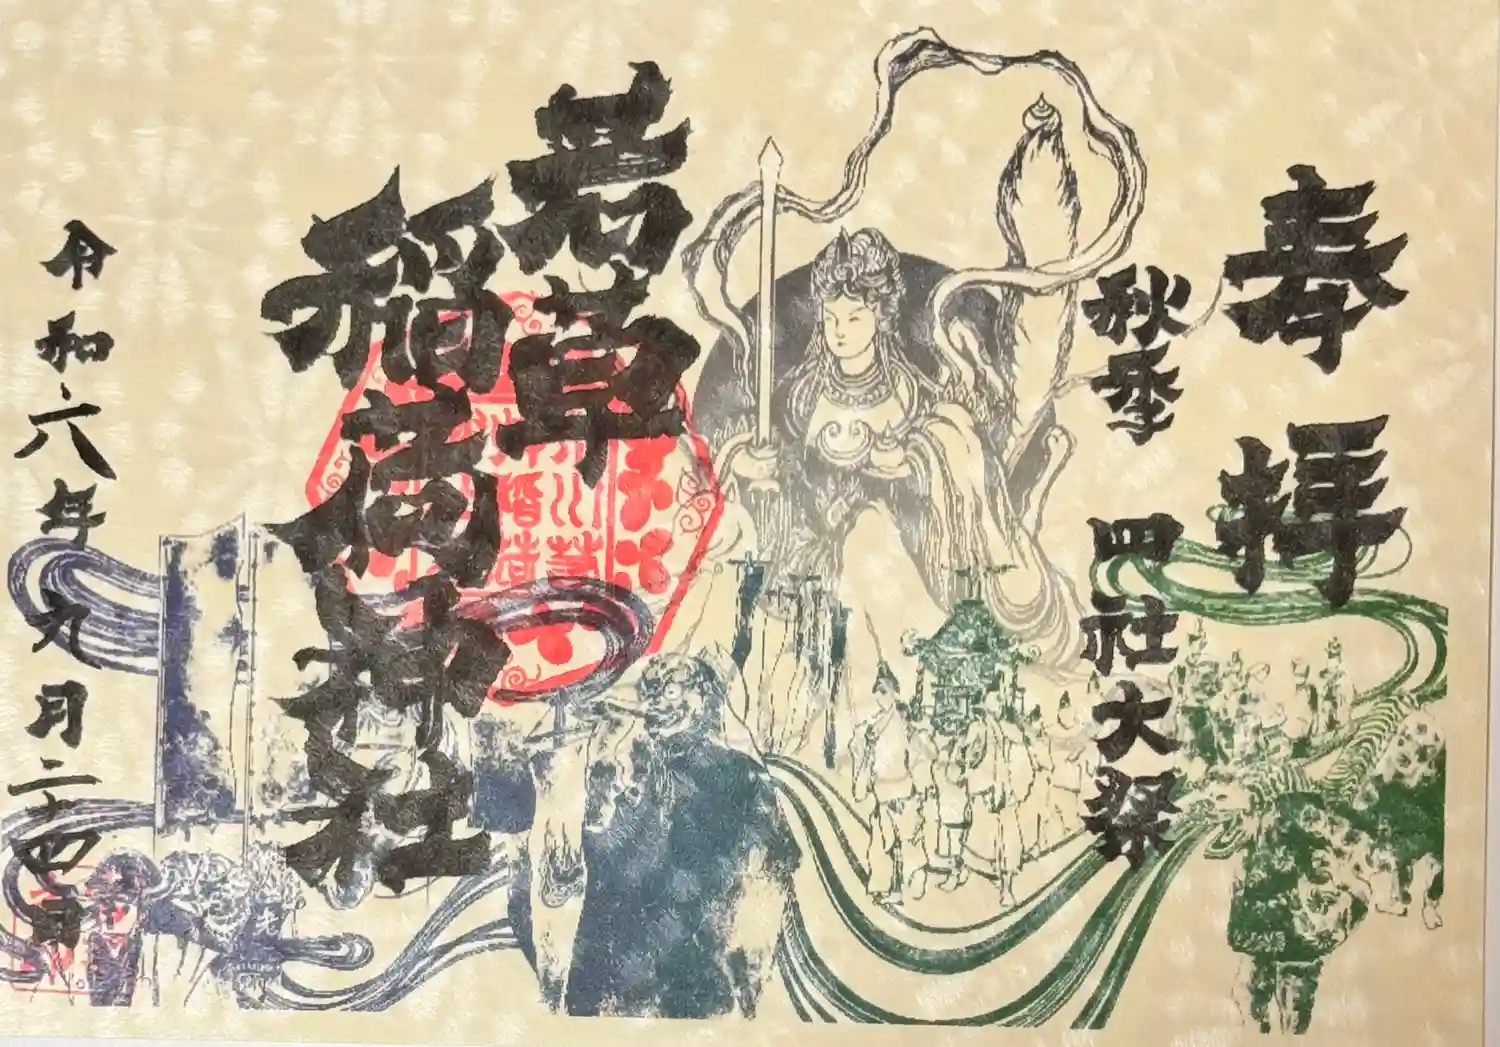 奉拝
秋季
四社大祭
若草
稲荷神社
令和六年九月二十四日